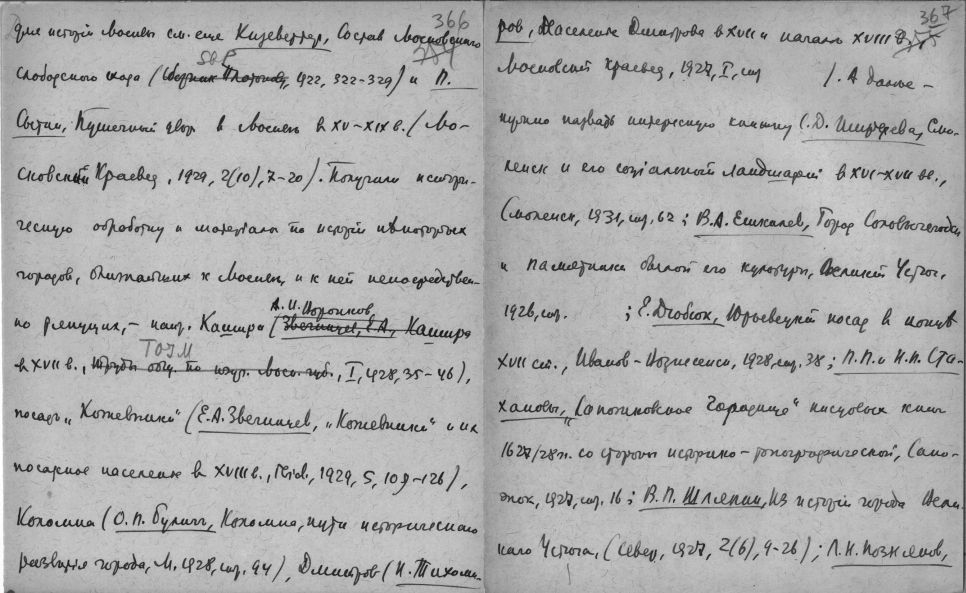 366
для исторіи Москвы см. еще Кизеветтер, Состав Московского
слободского схода (Сборник Платонову, 1922, 322-329) и П.
Сытин, Пушечный двор в Москве в XV-XIX в. (Мо-
сковский Краевед, 1929, 2(10), 7-20). Получили истори-
ческую обработку и матеріалы по исторіи некоторых
городов, ближайших к Москве, и к ней непосредствен-
А. И. Воронков,
но тянущих, - напр. Кашира (Звегинцев, Е.А., Кашира
ТОИМ
в XVII в., Труды общ. по изуч. Моск. губ., I, 1928, 35-46),
посад „Кожевники" (Е.А. Звегинцев, „Кожевники" и их
посадное население в XVIII в., ibid., 1929, 5, 109-126),
Коломна (О.П. Булич, Коломна, пути исторического
развития города, М. 1928, стр. 94), Дмитров (И. Тихоми-
367
ров, Население Дмитрова в XVII и начале XVIII в.,
Московский краевед, 1927, I, стр ). А далее -
нужно назвать интересную книжку (.Д. Ширяева, Смо-
ленск и его соціальный ландшафт в XVI-XVII вв.,
Смоленск, 1931, стр. 62; В.А. Ешкилев, Город Сольвычегодск
и памятники былой его культуры, Великий Устюг,
1926, стр. ; Е. Дюбюк, Юрьевецкий посад в конце
XVII ст., Иваново-Вознесенск, 1928, стр. 38; П.П. и Н.П. Ста-
хановы, „Сапожковское Городище" писцовых книг
1627/28 гг. со стороны историко-топографической, Сапо-
жок, 1927, стр. 16; В.П. Шляпин, Из исторіи города Вели-
каго Устюга, (Север, 1927, 2(6), 9-26); Л.Н. Позняков,